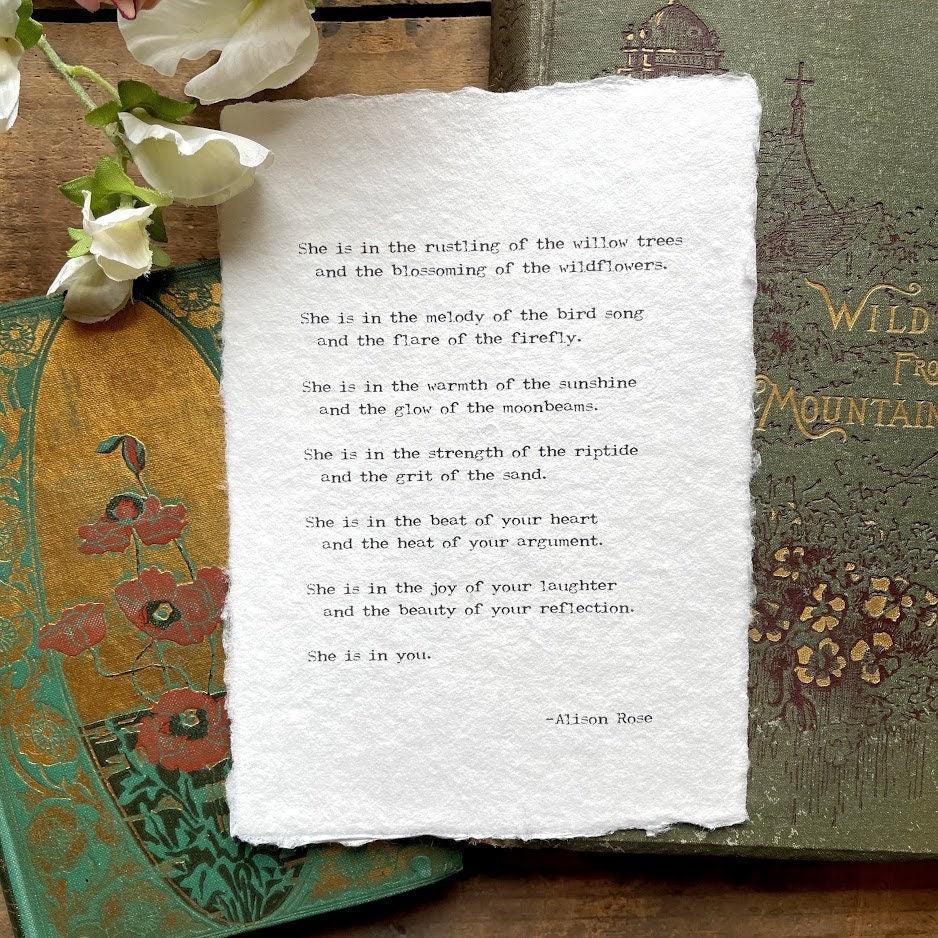 She is in the rustling of the willow trees
and the blossoming of the wildflowers.
She is in the melody of the bird song
and the flare of the firefly.
She is in the warmth of the sunshine
and the glow of the moonbeams.
She is in the strength of the riptide
and the grit of the sand.
She is in the beat of your heart
and the heat of your argument.
She is in the joy of your laughter
and the beauty of your reflection.
She is in you.
-Alison Rose
WILD
FRO
MOUNTAIN